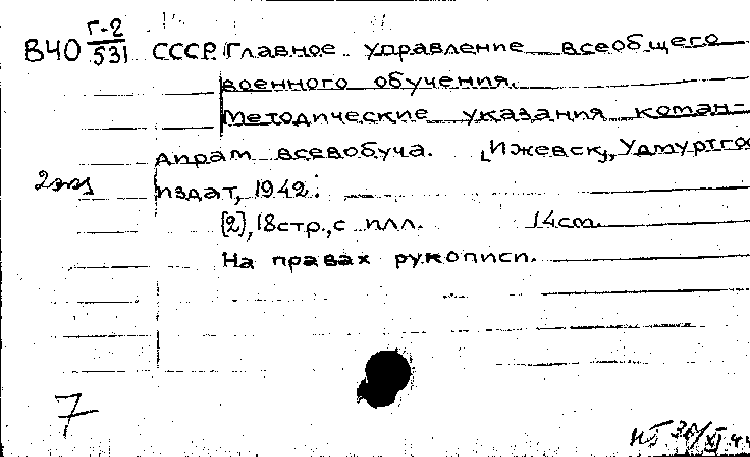 В40 Г-2/531 СССР. Главное управление всеобщего
военного обучения.
Методические указания коман-
дирам всевобуча. [Ижевск], Удмуртгос
2 экз издат, 1942.
[2], 18 стр., с илл. 14 cm.
На правах рукописи.
7